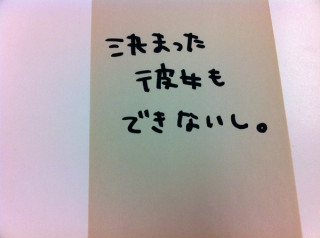 決まった
彼女も
できないし。